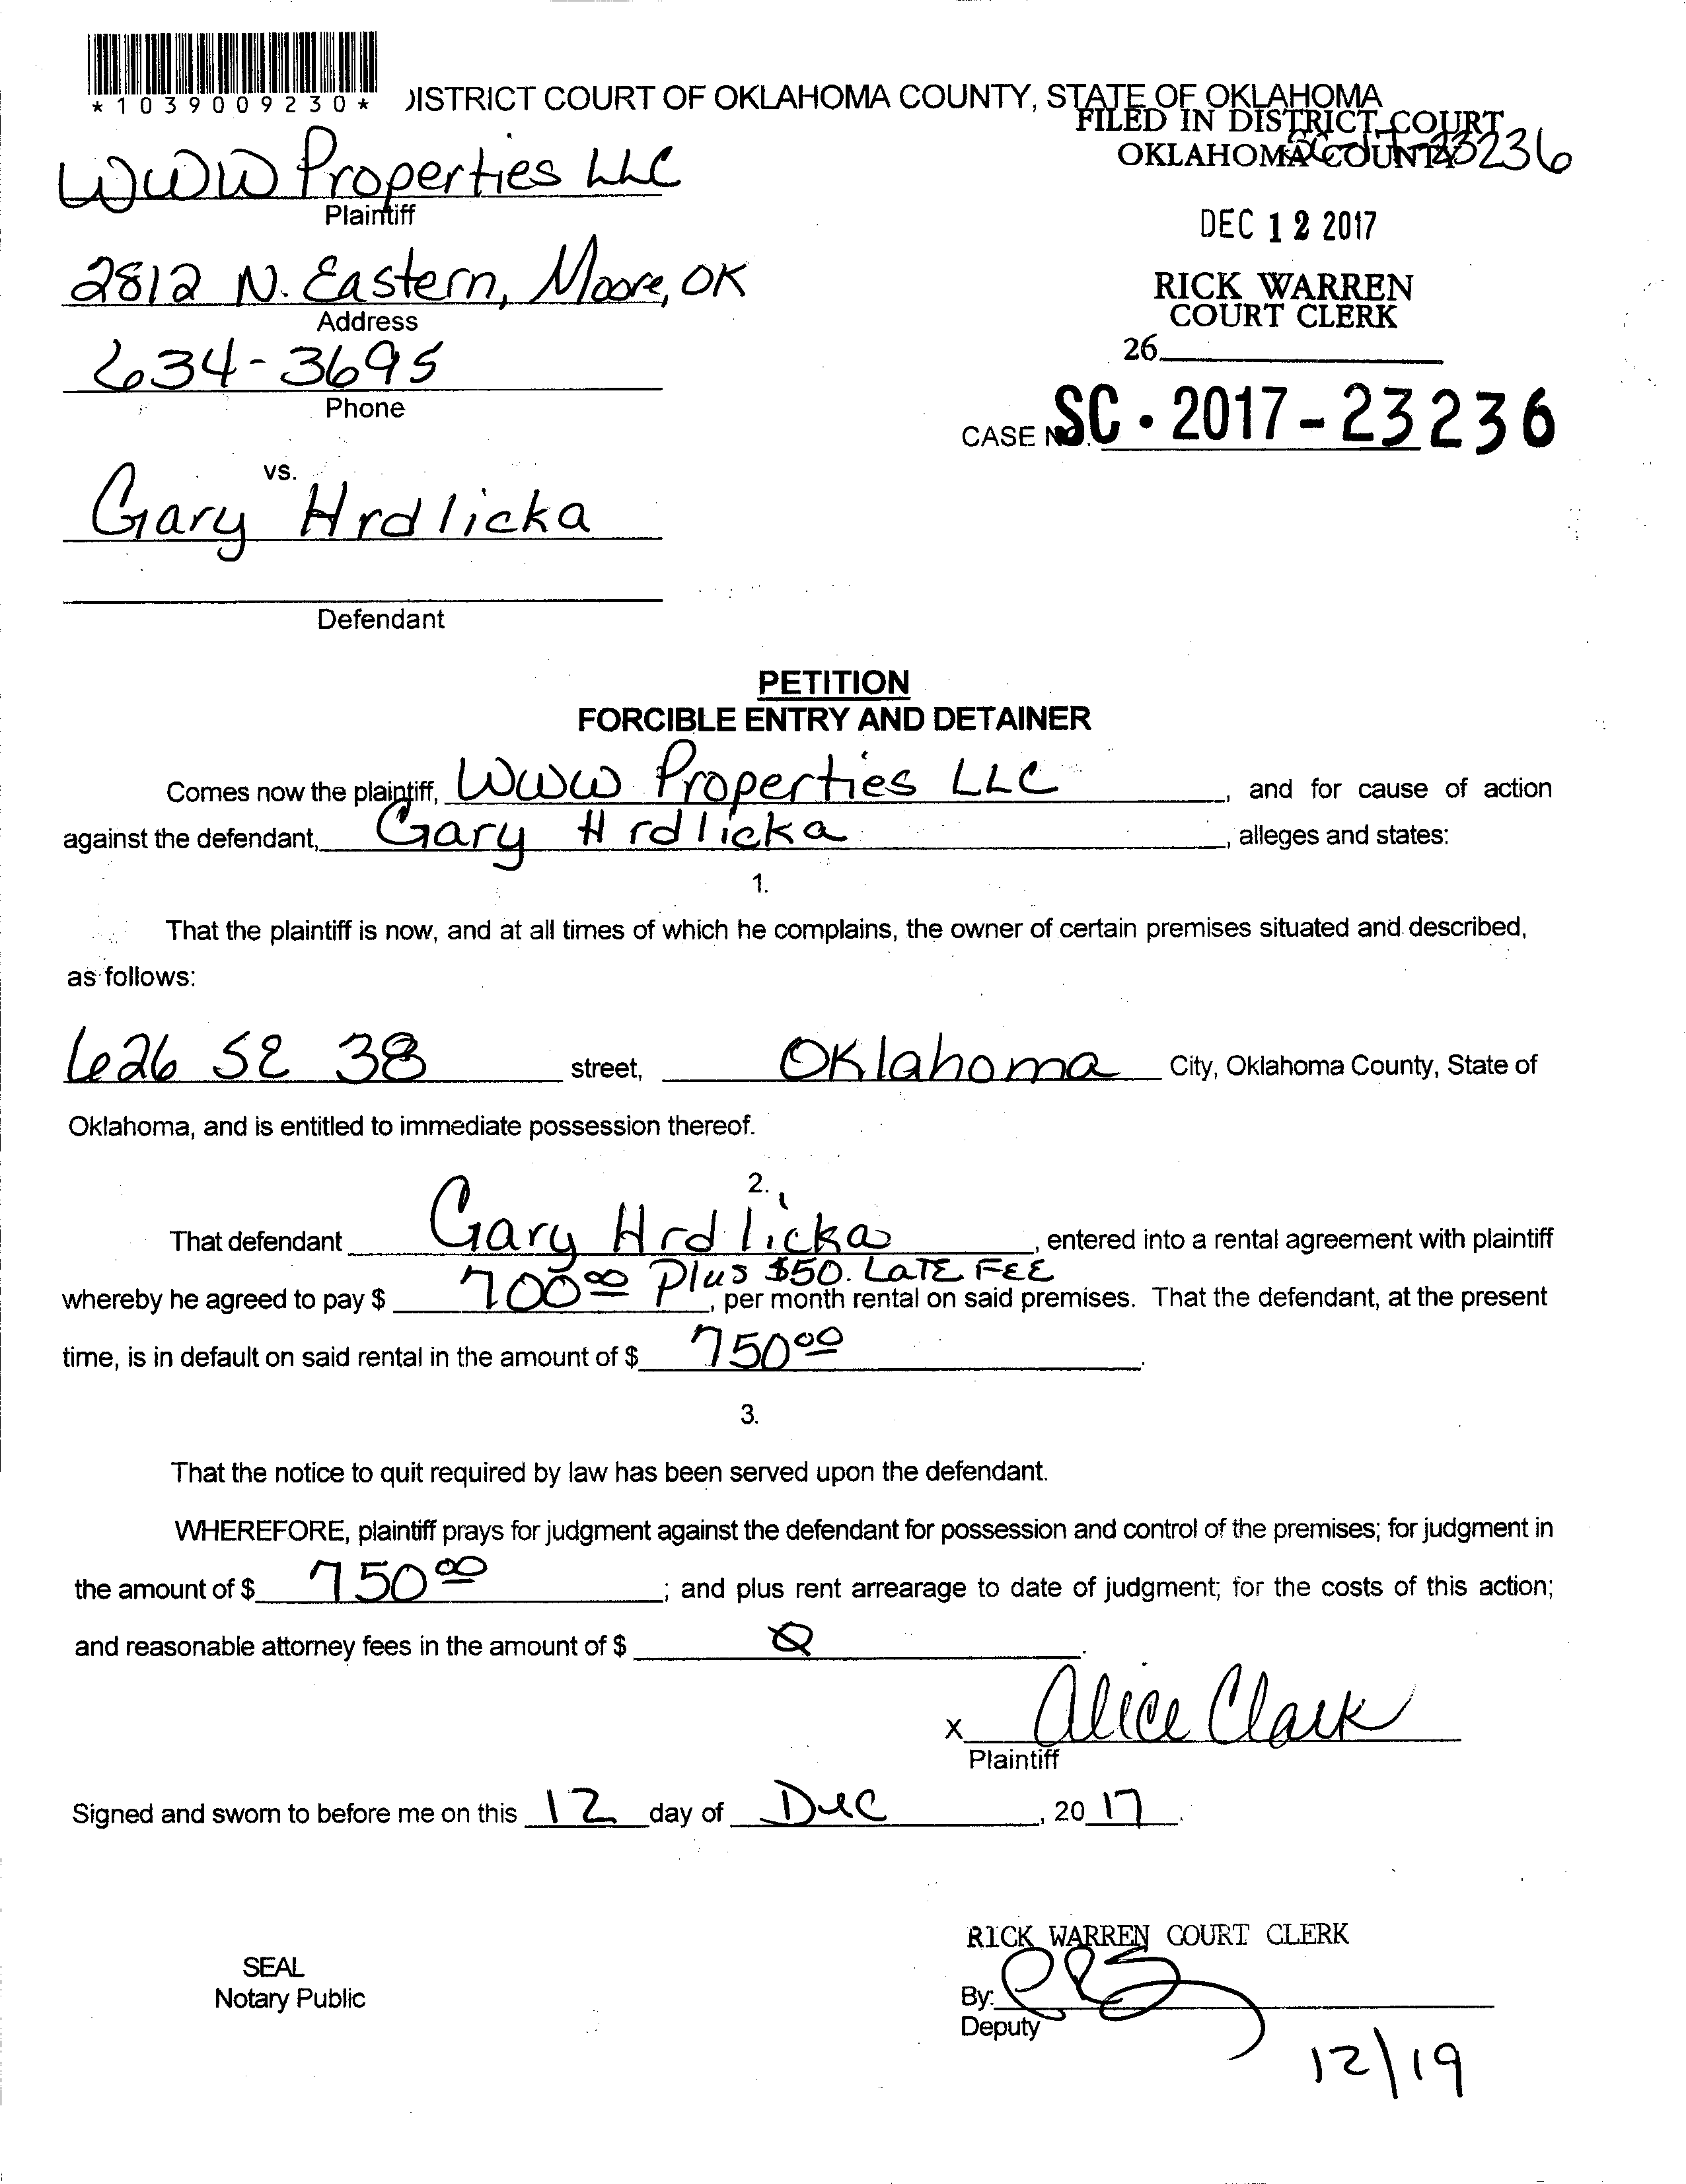 *1039009230*
DISTRICT COURT OF OKLAHOMA COUNTY, STATE OF OKLAHOMA
FILED IN DISTRICT COURT
OKLAHOMA COUNTY
SC-17-23236
WWW Properties LLC
Plaintiff
DEC 12 2017
2812 N. Eastern, Moore, OK
Address
RICK WARREN
COURT CLERK
634-3695
Phone
26
CASE NO. SC-2017-23236
vs.
Gary Hrdlicka
Defendant
PETITION
FORCIBLE ENTRY AND DETAINER
Comes now the plaintiff, WWW Properties LLC, and for cause of action
against the defendant, Gary Hrdlicka, alleges and states:
1.
That the plaintiff is now, and at all times of which he complains, the owner of certain premises situated and described,
as follows:
626 SE 38 street, Oklahoma City, Oklahoma County, State of
Oklahoma, and is entitled to immediate possession thereof.
2.
That defendant Gary Hrdlicka, entered into a rental agreement with plaintiff
whereby he agreed to pay $ 700.00 Plus $50. LATE FEE, per month rental on said premises. That the defendant, at the present
time, is in default on said rental in the amount of $ 750.00.
3.
That the notice to quit required by law has been served upon the defendant.
WHEREFORE, plaintiff prays for judgment against the defendant for possession and control of the premises; for judgment in
the amount of $ 750.00; and plus rent arrearage to date of judgment; for the costs of this action;
and reasonable attorney fees in the amount of $ 0.
X Alice Clark
Plaintiff
Signed and sworn to before me on this 12 day of Dec, 2017.
RICK WARREN COURT CLERK
SEAL
Notary Public
By:
Deputy
12\19